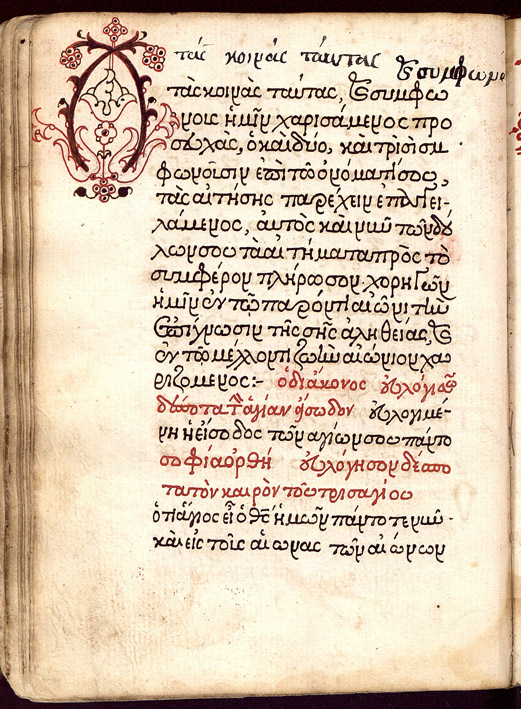 τάς κοινάς ταύτας ϗ συμφωνο
τὰς κοινὰς ταύτας, ϗ συμφώ
νοις ἡμῖν χαρισάμενος προ
σευχὰς, ὁ καὶ δύο, καὶ τρισὶ συμ
φωνοῦσιν ἐπὶ τῶ ὀνόματί σου,
τὰς αἰτήσης παρέχειν ἐπαγγει-
λάμενος, αὐτὸς καὶ νῦν τῶν δού
λων σου τὰ αἰτήματα πρὸς τὸ
συμφέρον πλήρωσον. χορηγῶν
ἡμῖν ἐν τῶ παρόντι αἰῶνι τὴν
ἐπίγνωσιν τῆς σῆς ἀληθείας, ϗ
ἐν τῶ μέλλοντι ζωὴν αἰώνιον χα
ριζόμενος:- ὁ διάκονος εὐλόγησον
δέσποτα τὴν ἁγίαν εἴσοδον εὐλογιμέ-
νη ἡ εἴσοδος τῶν ἁγίων σου πάντο
σοφία ὀρθή εὐλόγησον δέσπο
τα τὸν καιρὸν τοῦ τρισαγίου
ὅτι ἅγιος εἶ ὁ θς ἡμῶν πάντοτε νῦν.
καὶ εἰς τοὺς αἰῶνας τῶν αἰώνων